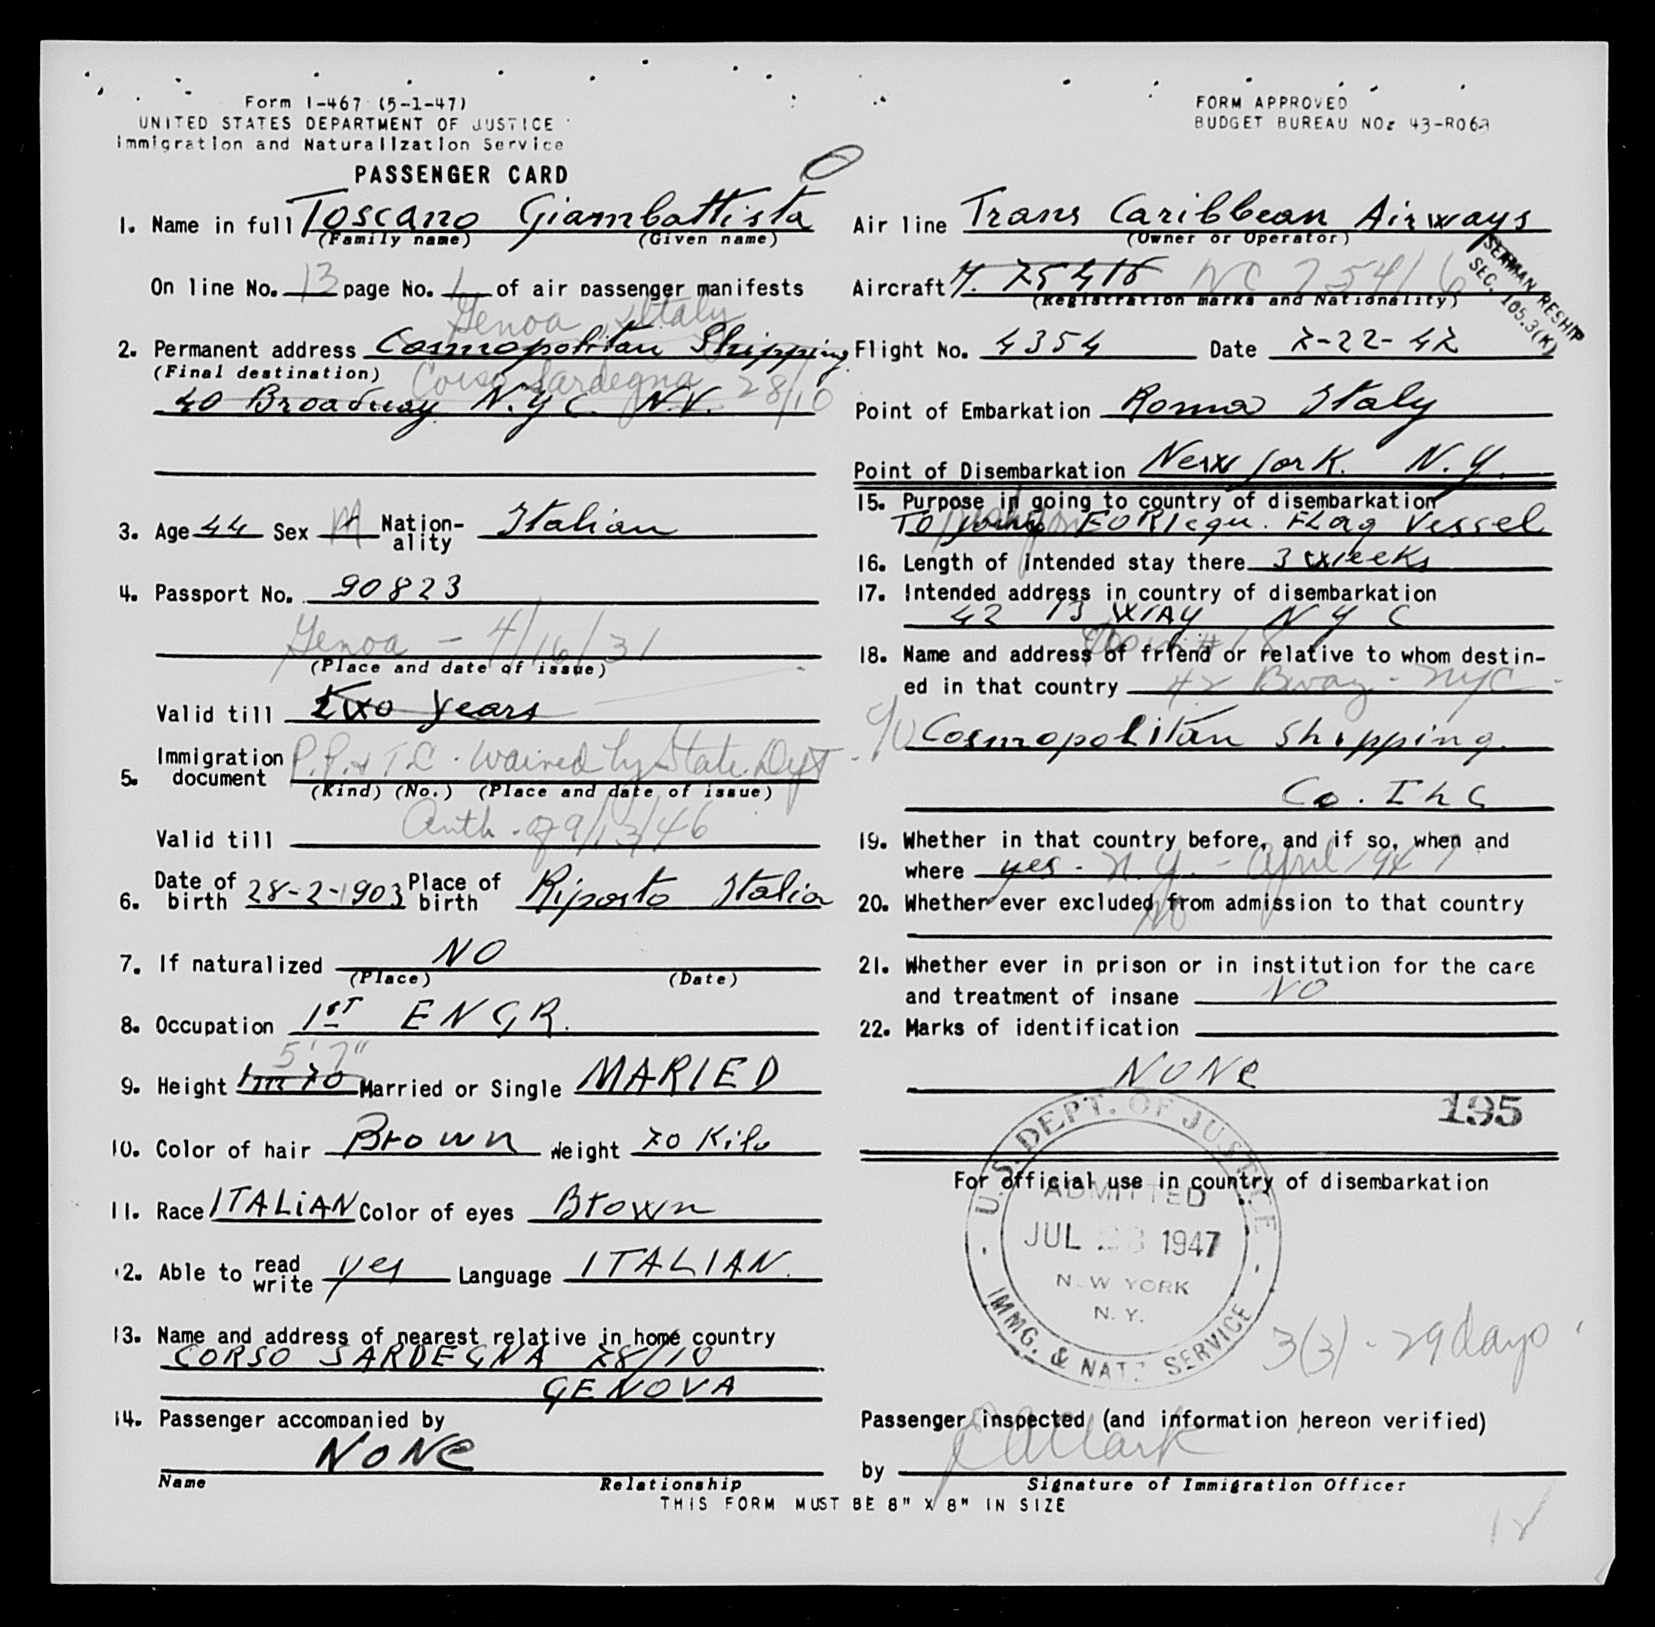 Form I-467 (5-1-47)
UNITED STATES DEPARTMENT OF JUSTICE
Immigration and Naturalization Service
PASSENGER CARD
FORM APPROVED
BUDGET BUREAU NO: 43-R063
1. Name in full Toscano Giambattista
(Family name) (Given name)
On line No. 13 page No. 1 of air passenger manifests
Genoa, Italy
2. Permanent address Cosmopolitan Shipping
(Final destination) Corso Sardegna 28/10
40 Broadway N.Y.C. N.Y.
3. Age 44 Sex M Nation-ality Italian
4. Passport No. 90823
Genoa - 4/16/31
(Place and date of issue)
Valid till two years
5. Immigration document P.P. & T.C. waived by State Dept
(Kind) (No.) (Place and date of issue)
Auth. of 9/13/46
Valid till
6. Date of birth 28-2-1903 Place of birth Riposto Italia
7. If naturalized NO
(Place) (Date)
8. Occupation 1ST ENGR.
5'7"
9. Height 1m 70 Married or Single MARIED
10. Color of hair Brown Weight 70 Kilo
11. Race ITALIAN Color of eyes Brown
12. Able to read write yes Language ITALIAN.
13. Name and address of nearest relative in home country
CORSO SARDEGNA 28/10
GENOVA
14. Passenger accompanied by
NONE
Name Relationship
Air line Trans Caribbean Airways
(Owner or Operator)
Aircraft 75416 NC 75416
(Registration marks and Nationality)
SEAMAN RESHIP
SEC. 105.3(K)
Flight No. 4354 Date 7-22-47
Point of Embarkation Roma Italy
Point of Disembarkation New York. N.Y.
15. Purpose in going to country of disembarkation
To Flag Vessel
16. Length of intended stay there 3 weeks
17. Intended address in country of disembarkation
42 B WAY N Y C
18. Name and address of friend or relative to whom destin-
ed in that country 42 Bway - NYC
c/o Cosmopolitan Shipping
Co. Inc
19. Whether in that country before, and if so, when and
where yes - N.Y. - April 1947
20. Whether ever excluded from admission to that country
No
21. Whether ever in prison or in institution for the care
and treatment of insane NO
22. Marks of identification
NONE
195
For official use in country of disembarkation
U.S. DEPT. OF JUSTICE
ADMITTED
JUL 1947
NEW YORK
N.Y.
IMMG. & NATZ SERVICE
3(3) - 29 days
Passenger inspected (and information hereon verified)
by
Signature of Immigration Officer
THIS FORM MUST BE 8" X 8" IN SIZE